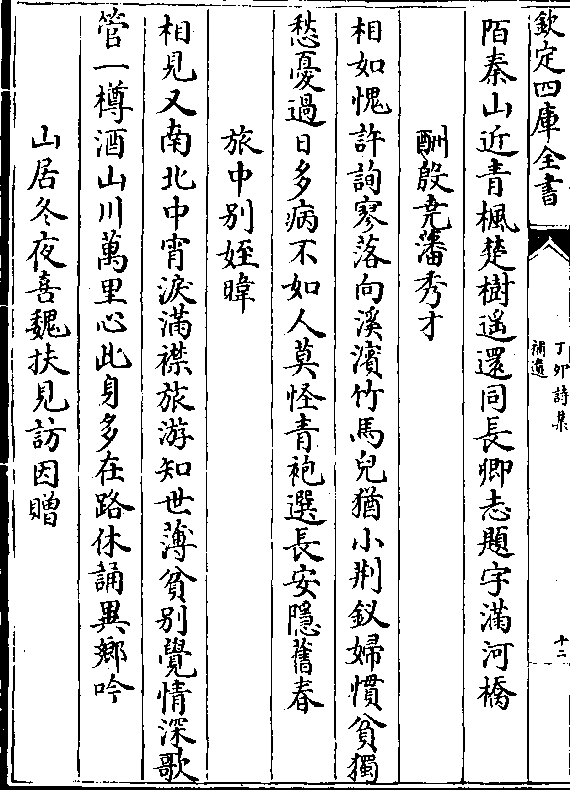 欽定四庫全書
丁卯詩集
補遺
十二
陌秦山近青楓楚樹遥還同長卿志題字滿河橋
酬殷堯藩秀才
相如愧許詢寥落向溪濱竹馬兒猶小荆釵婦慣貧獨
愁憂過日多病不如人莫怪青袍選長安隱舊春
旅中别姪暐
相見又南北中宵淚滿襟旅游知世薄貧别覺情深歌
管一樽酒山川萬里心此身多在路休誦異鄉吟
山居冬夜喜魏扶見訪因贈